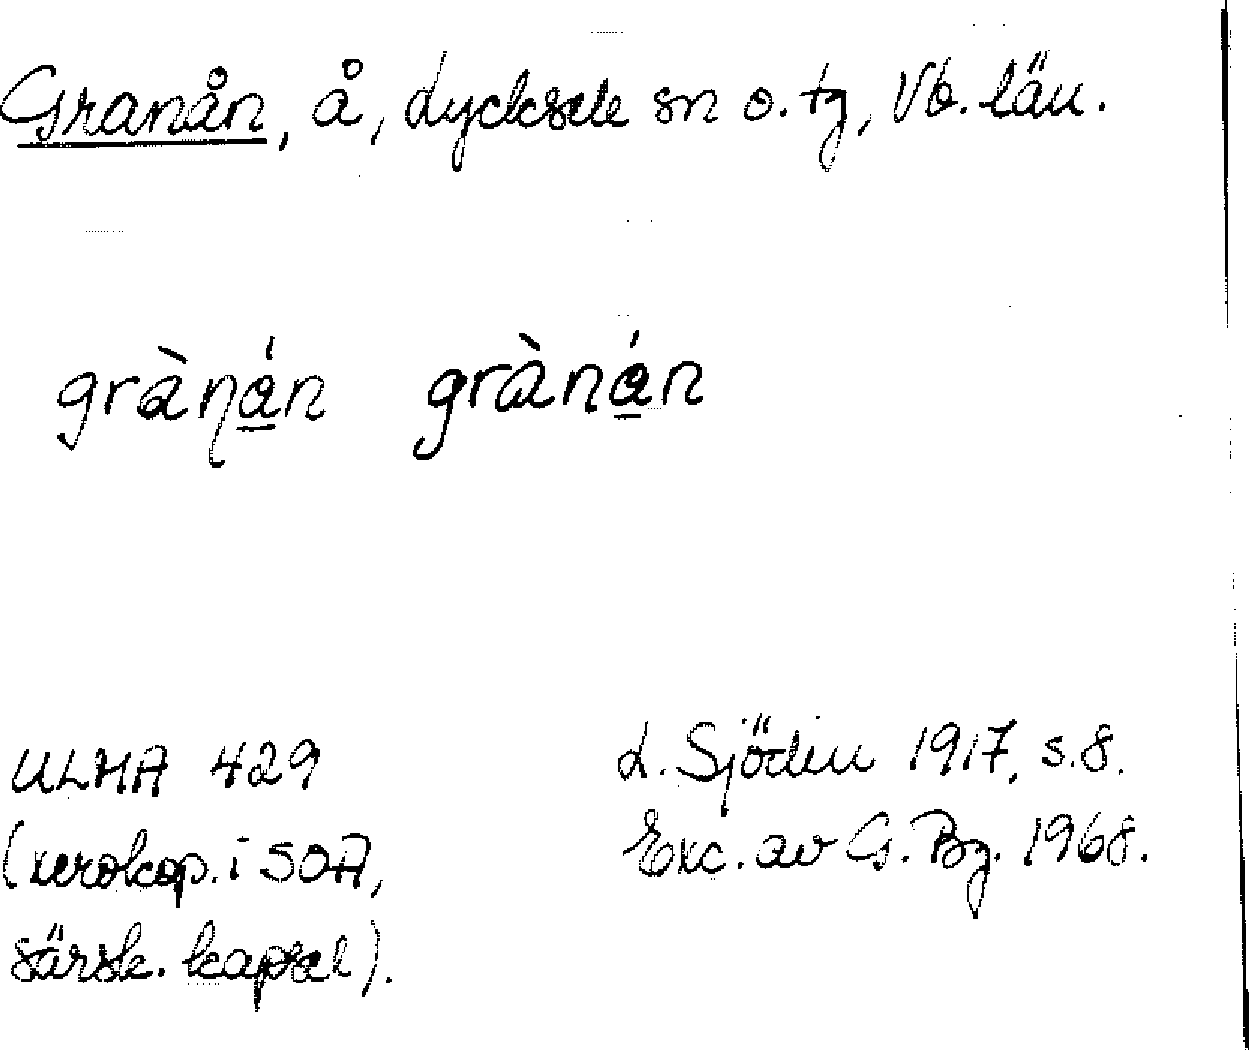 Granån, å, Lycksele sn o. tg, Vb. län.
gràná̱n gràná̱n
ULMA 429
(xerokop. i SOA,
särsk. kapsel).
L. Sjödin 1917, s. 8.
Exc. av G. Bg. 1968.